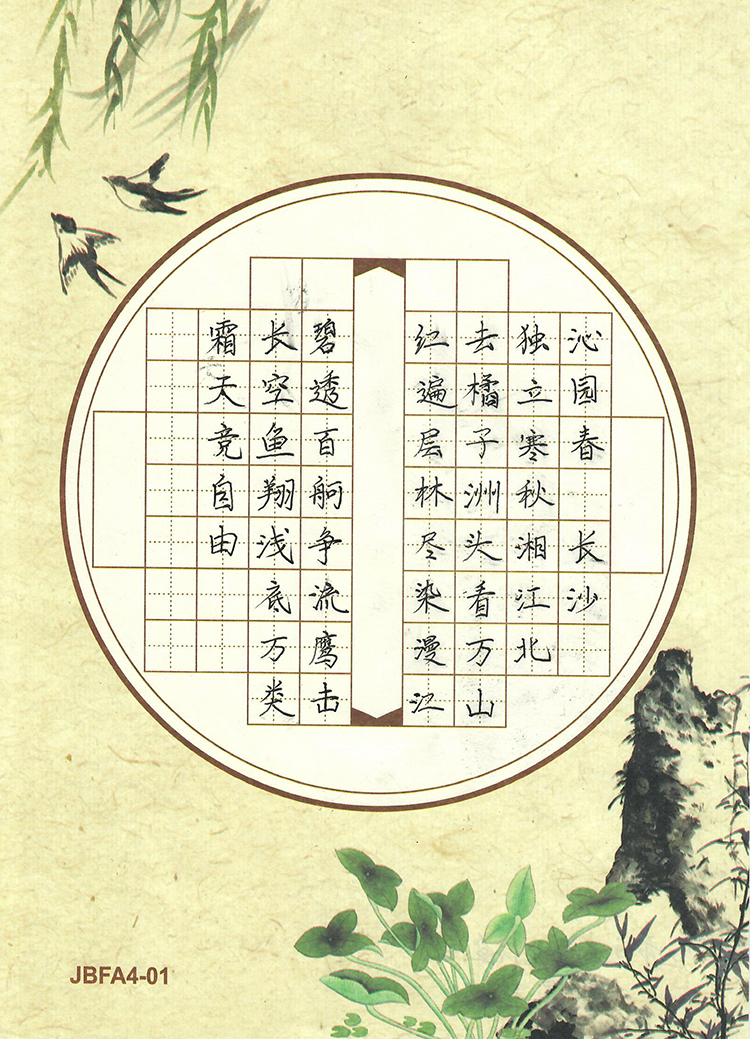 沁园春 长沙
独立寒秋湘江北
去橘子洲头看万山
红遍层林尽染漫江
碧透百舸争流鹰击
长空鱼翔浅底万类
霜天竞自由
JBFA4-01